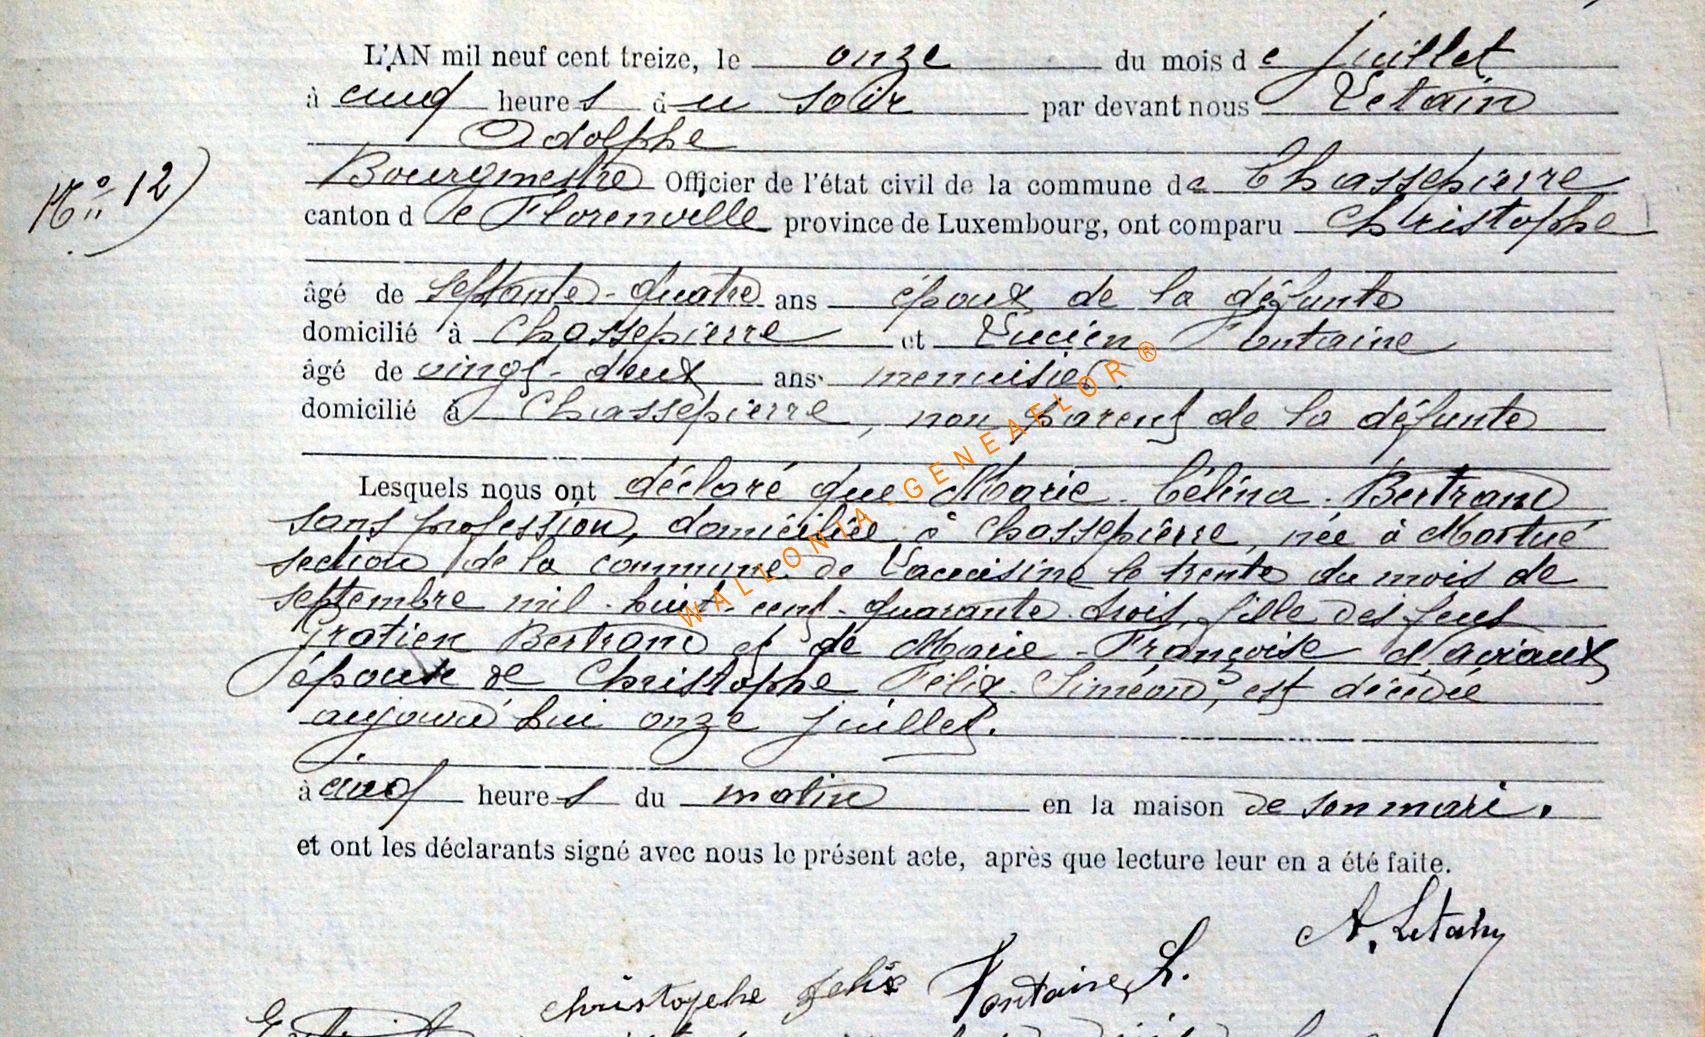 L'AN mil neuf cent treize, le onze du mois de juillet
à cinq heures du soir par devant nous Letain
Adolphe
Bourgmestre Officier de l'état civil de la commune de Chassepierre
No 12)
canton de Florenville province de Luxembourg, ont comparu Christophe
âgé de septante-quatre ans époux de la défunte
domicilié à Chassepierre et Lucien Fontaine
âgé de vingt-deux ans menuisier
domicilié à Chassepierre, non parent de la défunte
Lesquels nous ont déclaré que Marie-Célina-Bertrand
sans profession, domiciliée à Chassepierre, née à Martué
section de la commune de Lacuisine le trente du mois de
septembre mil-huit-cent-quarante-trois, fille des feus
Gratien Bertrand et de Marie-Françoise
épouse de Christophe Félix-Siméon, est décédée
aujourd'hui onze juillet.
à cinq heures du matin en la maison de son mari.
et ont les déclarants signé avec nous le présent acte, après que lecture leur en a été faite.
A. Letain
Christophe Felix Fontaine, L.
WALLONIA-GENEAFLOR®